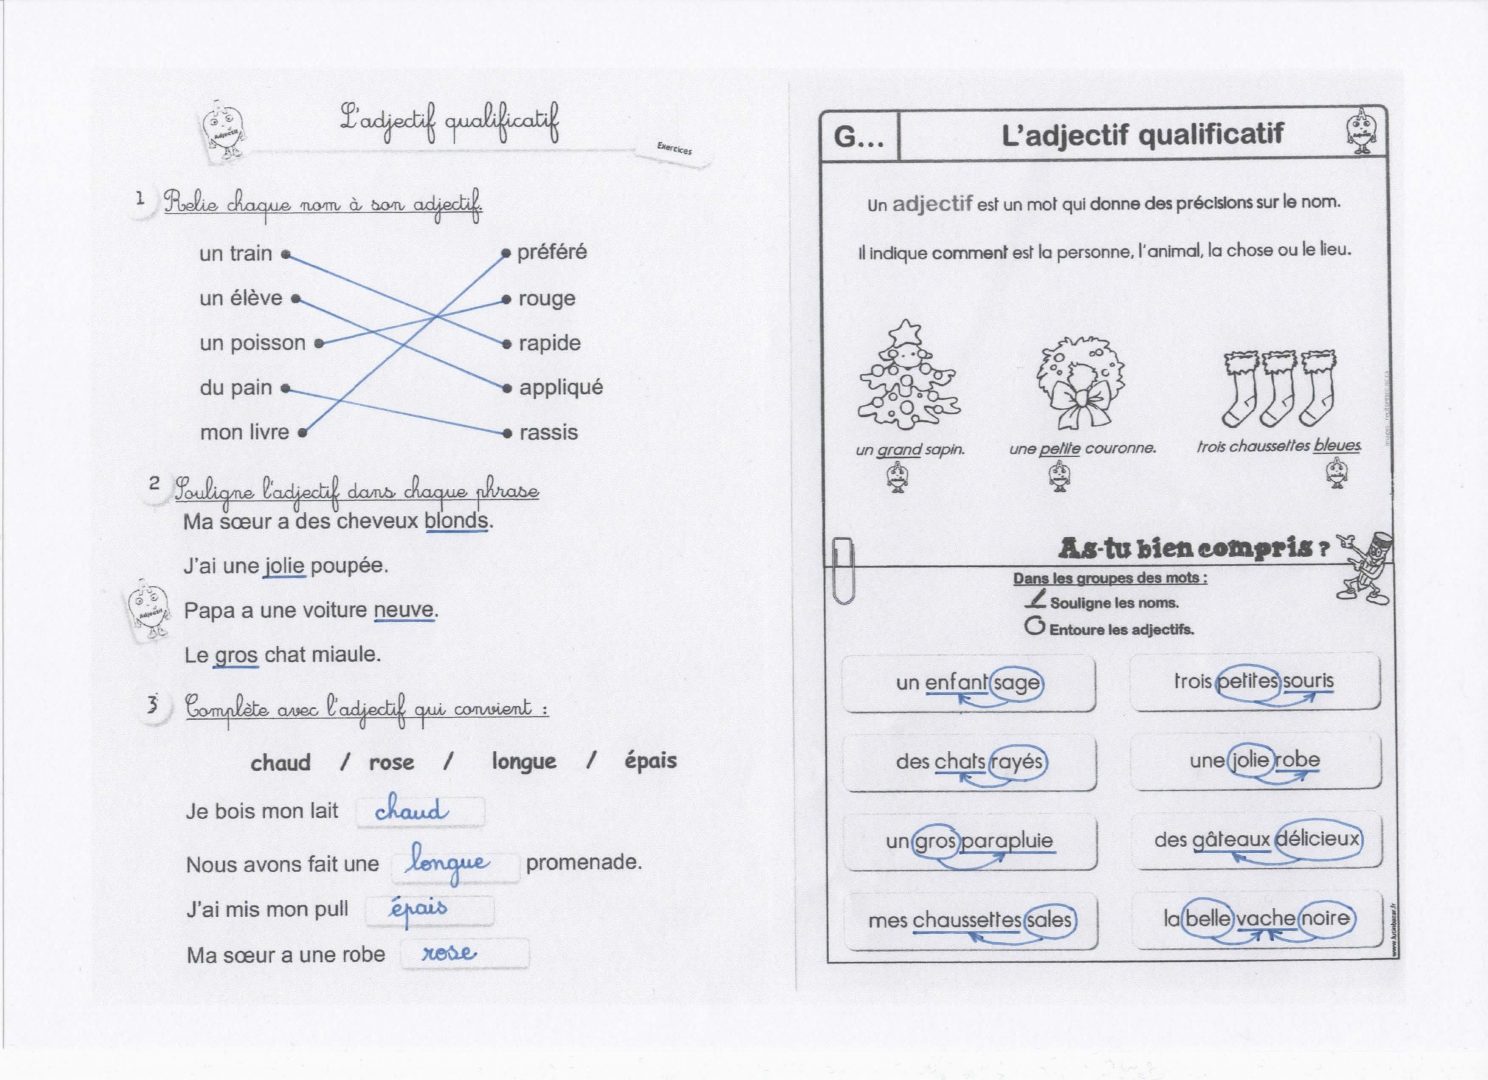 L'adjectif qualificatif
Adjectif
Exercices
1 Relie chaque nom à son adjectif.
un train préféré
un élève rouge
un poisson rapide
du pain appliqué
mon livre rassis
2 Souligne l'adjectif dans chaque phrase
Ma sœur a des cheveux blonds.
J'ai une jolie poupée.
Papa a une voiture neuve.
Le gros chat miaule.
3 Complète avec l'adjectif qui convient :
chaud / rose / longue / épais
Je bois mon lait chaud
Nous avons fait une longue promenade.
J'ai mis mon pull épais
Ma sœur a une robe rose
G... L'adjectif qualificatif
Un adjectif est un mot qui donne des précisions sur le nom.
Il indique comment est la personne, l'animal, la chose ou le lieu.
un grand sapin. une petite couronne. trois chaussettes bleues.
As-tu bien compris ?
Dans les groupes des mots :
Souligne les noms.
Entoure les adjectifs.
un enfant sage trois petites souris
des chats rayés une jolie robe
un gros parapluie des gâteaux délicieux
mes chaussettes sales la belle vache noire